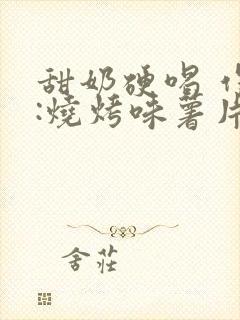 甜奶硬唱
:燒烤味薯片
舍莊